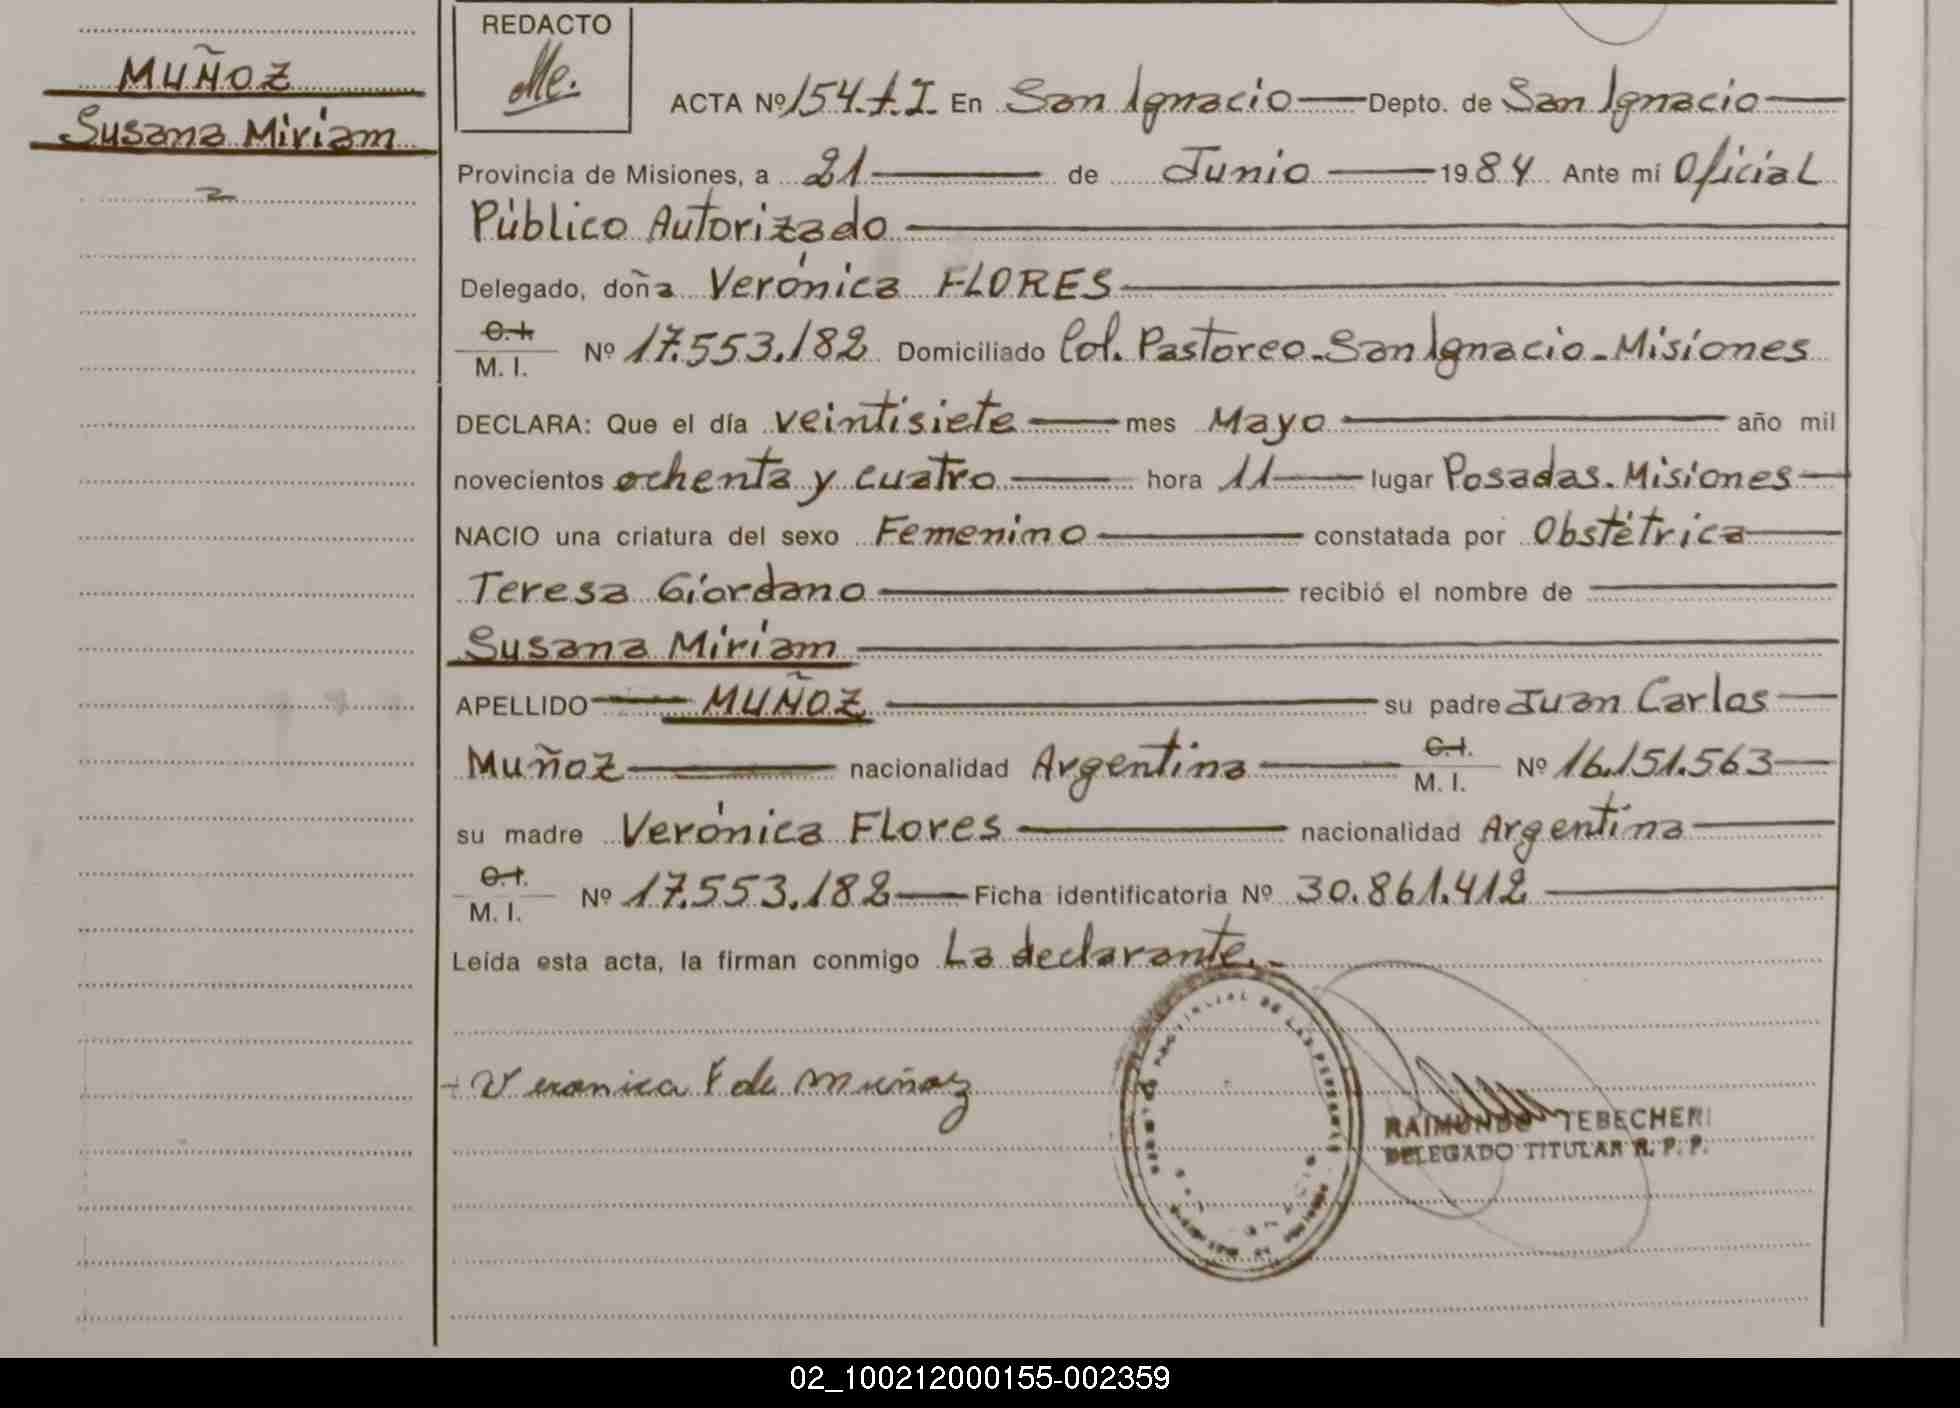 MUÑOZ
Susana Miriam
REDACTO
Me.
ACTA Nº 154.t.I. En San Ignacio Depto. de San Ignacio
Provincia de Misiones, a 21 de Junio 1984 Ante mí Oficial
Público Autorizado
Delegado, doña Verónica FLORES
C.I.
M. I. Nº 17.553.182 Domiciliado Col. Pastoreo-San Ignacio-Misiones
DECLARA: Que el día veintisiete mes Mayo año mil
novecientos ochenta y cuatro hora 11 lugar Posadas. Misiones
NACIO una criatura del sexo Femenino constatada por Obstétrica
Teresa Giordano recibió el nombre de
Susana Miriam
APELLIDO MUÑOZ su padre Juan Carlos
Muñoz nacionalidad Argentina C.I.
M. I. Nº 16.151.563
su madre Verónica Flores nacionalidad Argentina
C.I.
M. I. Nº 17.553.182 Ficha identificatoria Nº 30.861.412
Leída esta acta, la firman conmigo La declarante.-
Veronica F de Muñoz
PROVINCIAL DE LAS PERSONAS
RAIMUNDO TEBECHERI
DELEGADO TITULAR R. P. P.
02_100212000155-002359